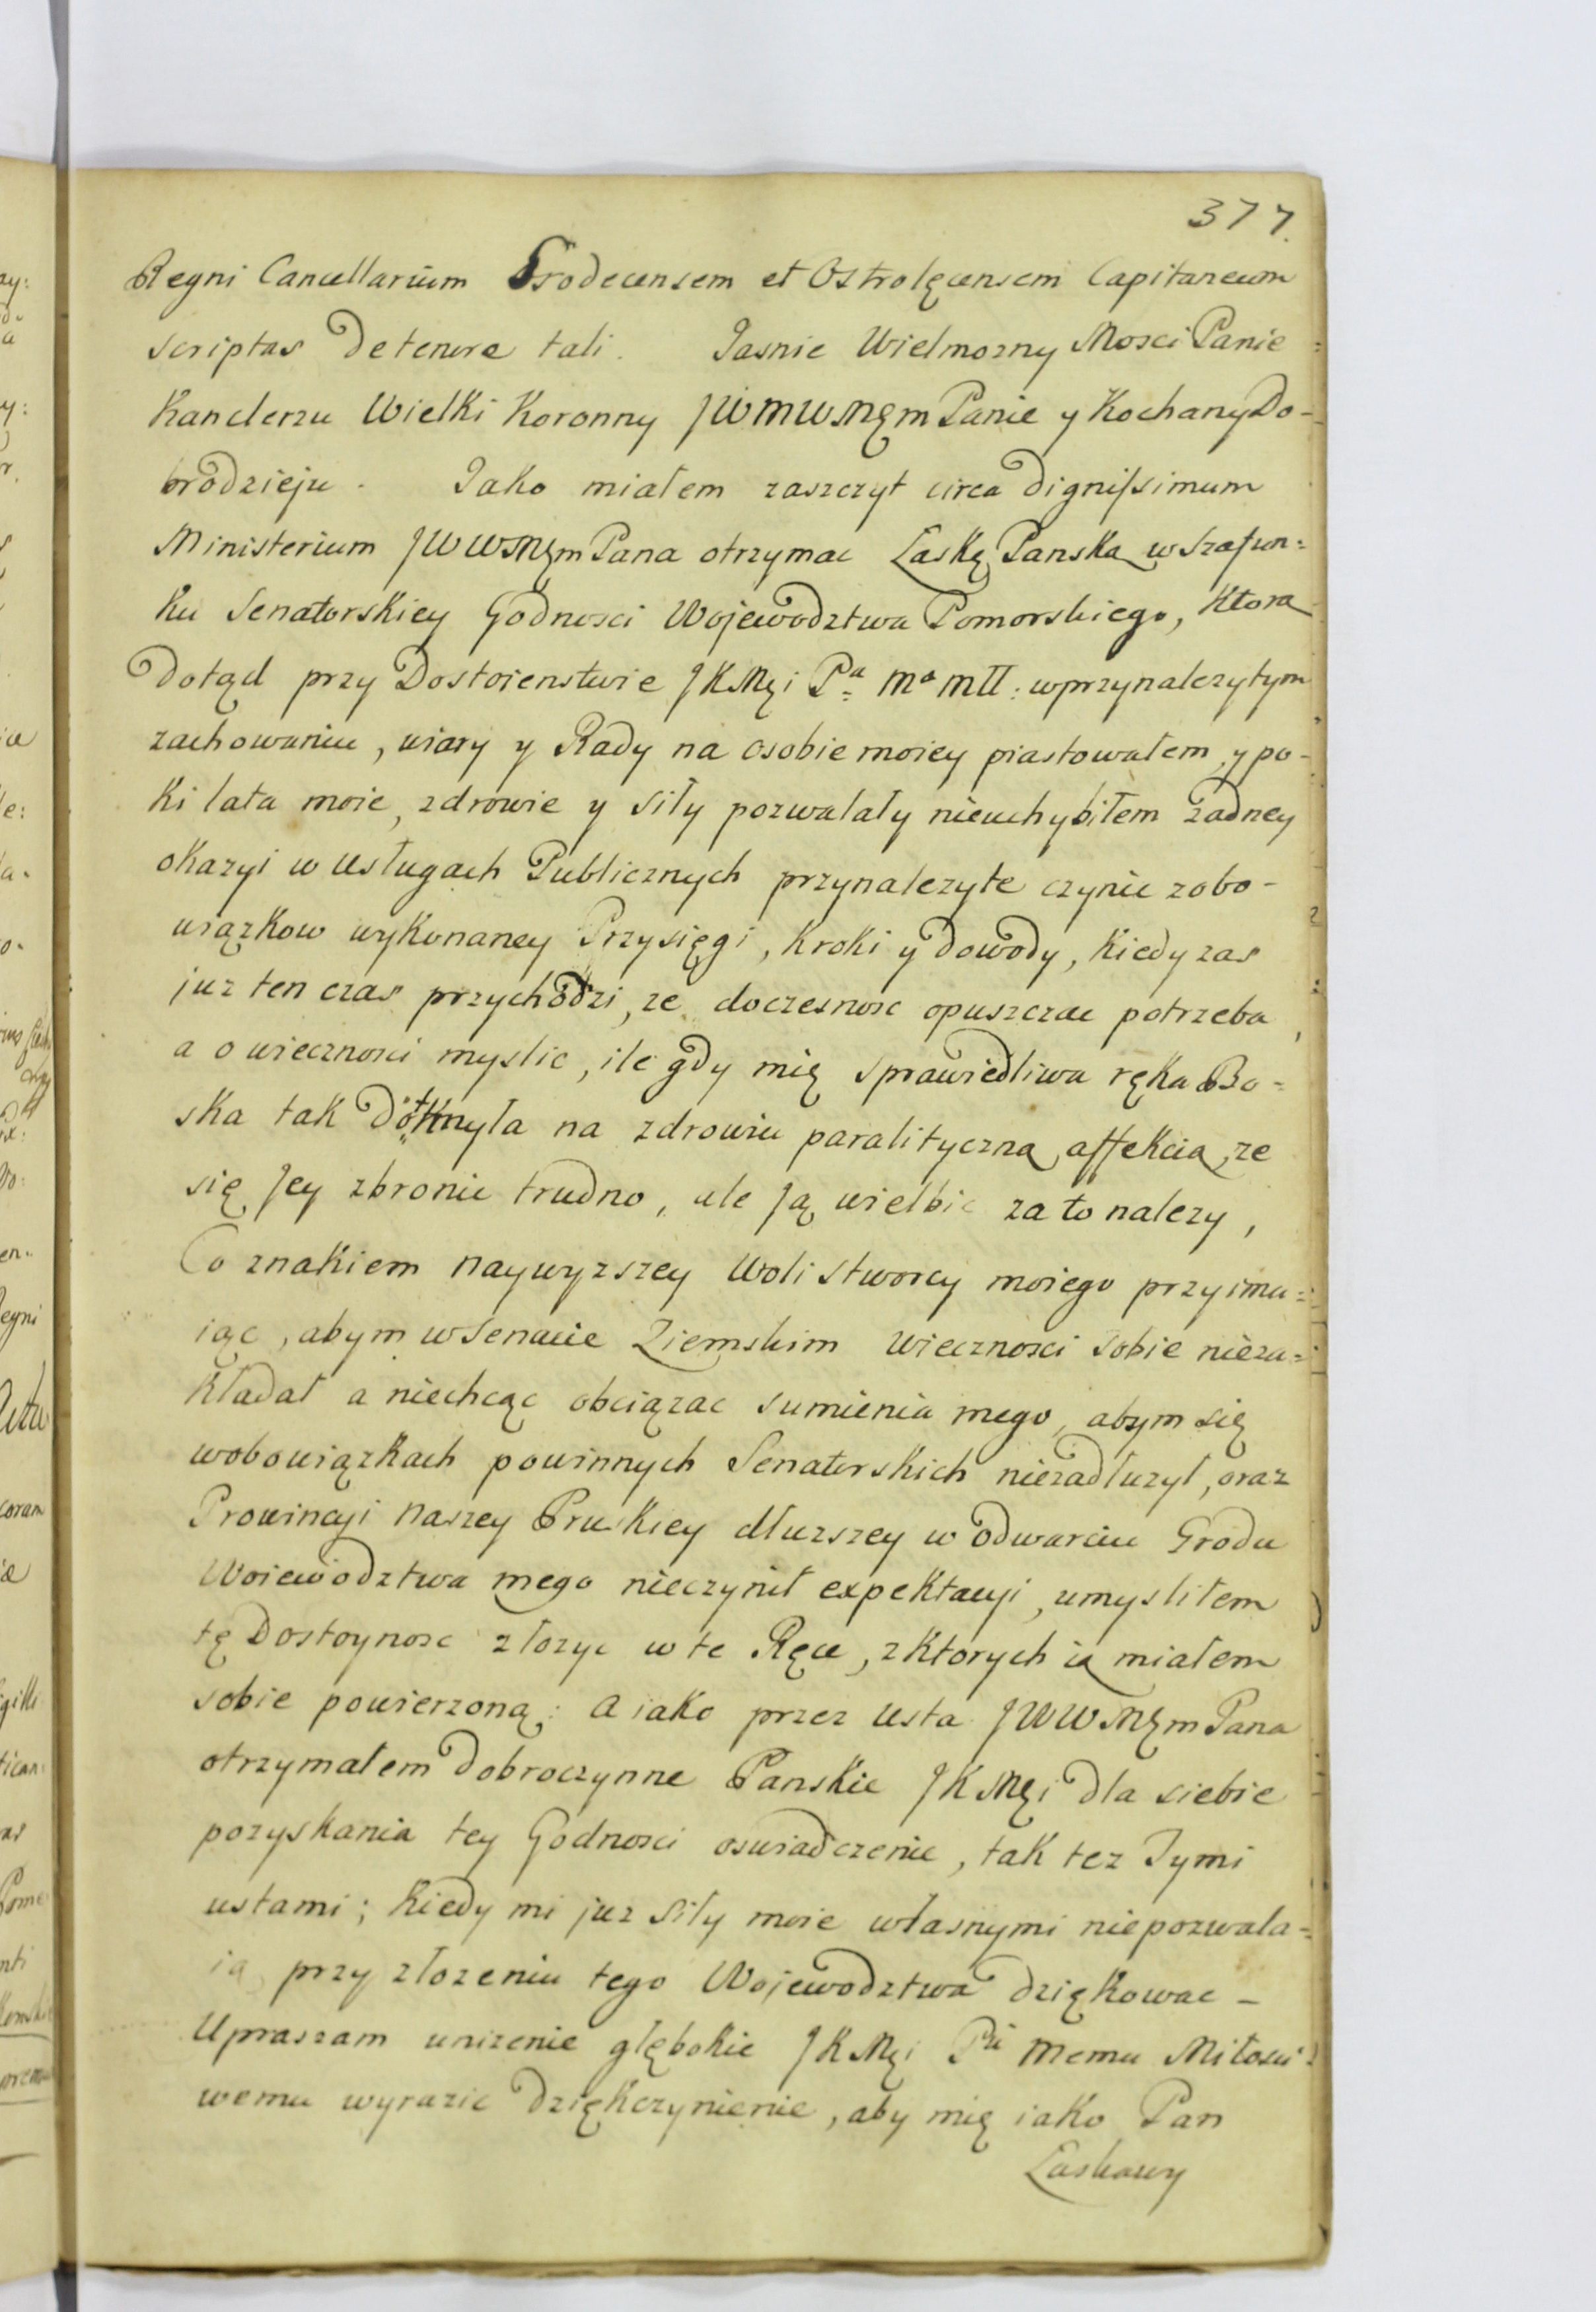 377.
Regni Cancellarium Grodecensem et Ostrolęcensem Capitaneum
scriptas de tenore tali. Jasnie Wielmozny Mosci Panie
Kanclerzu Wielki Koronny JWMWMgm Panie y Kochany Do-
brodzieju. Jako miałem zaszczyt circa dignissimum
Ministerium JWWMgm Pana otrzymac Łaskę Panską w Szafun=
ku Senatorskiey Godnosci Wojewodztwa Pomorskiego, Ktorą
dotąd przy Dostoienstwie JKMęi Pa Ma Mtt: w przynalezytym
zachowaniu, wiary y Rady na osobie moiey piastowałem, y po-
ki lata moie, zdrowie y siły pozwalały nieuchybiłem zadney
okazyi w usługach Publicznych przynalezyte czynic zobo-
wiązkow wykonaney Przysięgi, kroki y dowody, kiedy zas
juz ten czas przychodzi, ze doczesnosc opuszczac potrzeba,
a o wiecznosci myslic, ile gdy mię sprawiedliwa ręka Bo=
ska tak dotknyła na zdrowiu paralityczną affekcią, ze
się Jey zbronic trudno, ale Ją wielbic za to nalezy,
Co znakiem naywyzszey woli stworcy moiego przyimu=
iąc, abym w Senacie Ziemskim wiecznosci sobie nieza=
kładał a niechcąc obciązac sumienia mego, abym się
wobowiązkach powinnych Senatorskich niezadłuzył, oraz
Prowincyi naszey Pruskiey dłuzszey w odwarciu Grodu
Woiewodztwa mego nieczynił expektacyi, umysliłem
tę Dostoynosc złozyc w te Ręce, z ktorych ią miałem
sobie powierzoną: a iako przez usta JWWMgm Pana
otrzymałem dobroczynne Panskie JKMęi dla siebie
pozyskania tey Godnosci oswiadczenie, tak tez Tymi
ustami; kiedy mi juz siły moie własnymi niepozwala=
ią przy złozeniu tego Wojewodztwa dziękowac –
Upraszam unizenie głębokie JKMęi Pu Memu Miłosci=
wemu wyrazic dziękczynienie, aby mię iako Pan
Łaskawy